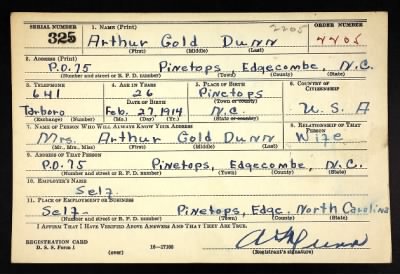 SERIAL NUMBER 1. NAME (Print) ORDER NUMBER
2205
325 Arthur Gold Dunn 2205
(First) (Middle) (Last)
2. ADDRESS (Print)
P.O. 75 Pinetops Edgecombe, N.C.
(Number and street or R. F. D. number) (Town) (County) (State)
3. TELEPHONE 4. AGE IN YEARS 5. PLACE OF BIRTH 6. COUNTRY OF CITIZENSHIP
641 26 Pinetops
DATE OF BIRTH (Town or county)
Tarboro Feb. 27, 1914 N.C. U.S.A
(Exchange) (Number) (Mo.) (Day) (Yr.) (State or country)
7. NAME OF PERSON WHO WILL ALWAYS KNOW YOUR ADDRESS 8. RELATIONSHIP OF THAT PERSON
Mrs. Arthur Gold Dunn Wife
(Mr., Mrs., Miss) (First) (Middle) (Last)
9. ADDRESS OF THAT PERSON
P.O. 75 Pinetops, Edgecombe, N.C.
(Number and street or R. F. D. number) (Town) (County) (State)
10. EMPLOYER'S NAME
Self.
11. PLACE OF EMPLOYMENT OR BUSINESS
Self- Pinetops, Edgc. North Carolina
(Number and street or R. F. D. number) (Town) (County) (State)
I AFFIRM THAT I HAVE VERIFIED ABOVE ANSWERS AND THAT THEY ARE TRUE.
REGISTRATION CARD
D. S. S. Form 1 (over) 16-17105 (Registrant's signature)